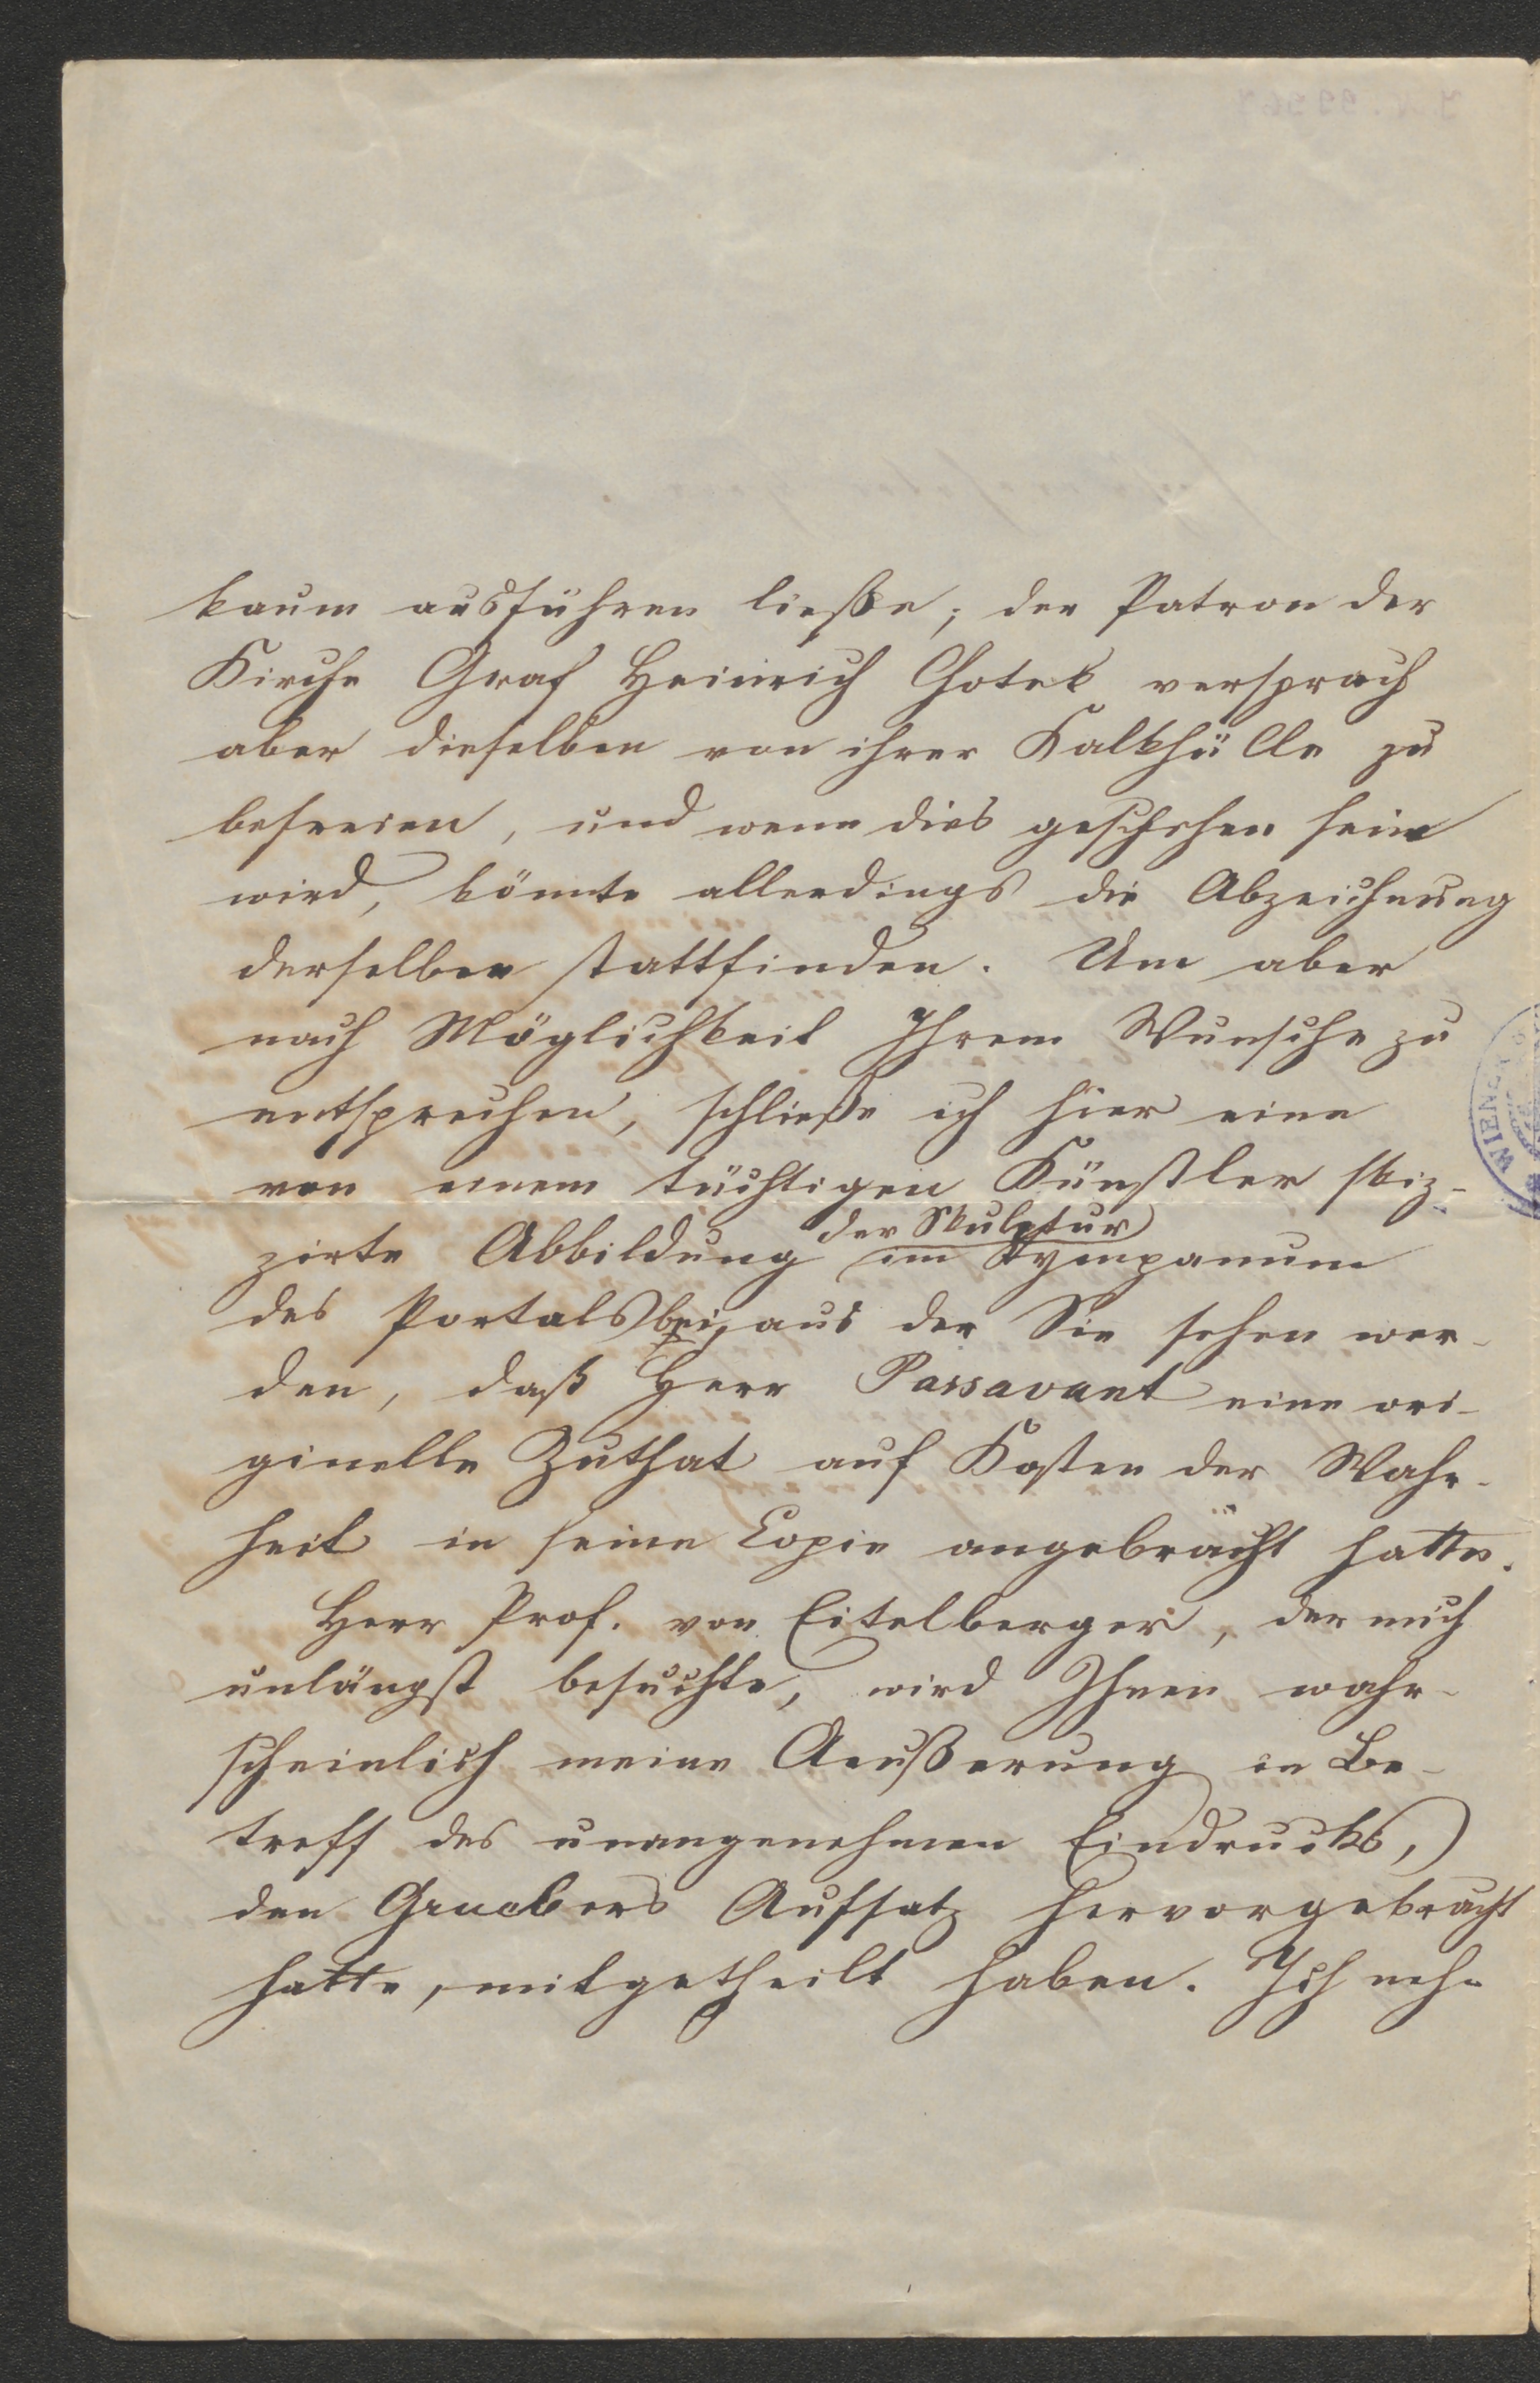 kaum ausführen ließe; der Patron der
Kirche Graf Heinrich Chotek versprach
aber dieselben von ihrer Kalkhülle zu
befreien, und wenn dies geschehen sein
wird, könnte allerdings die Abzeichnung
derselben stattfinden. Um aber
nach Möglichkeit Ihrem Wunsche zu
entsprechen, schließe ich hier eine
von einem tüchtigen Künstler skiz-
der Skulptur
zirte Abbildung im Tympanum
des Portals bei, aus der Sie sehen wer-
den, daß Herr Passavant eine ori-
ginelle Zuthat auf Kosten der Wahr-
heit in seine Copie angebracht hatte.
Herr Prof. von Eitelberger, der mich
unlängst besuchte, wird Ihnen wahr-
scheinlich meine Aeußerung in Be-
treff des unangenehmen Eindrucks,
den Gruebers Aufsatz hervorgebracht
hatte, mitgetheilt haben. Ich neh-
WIENER